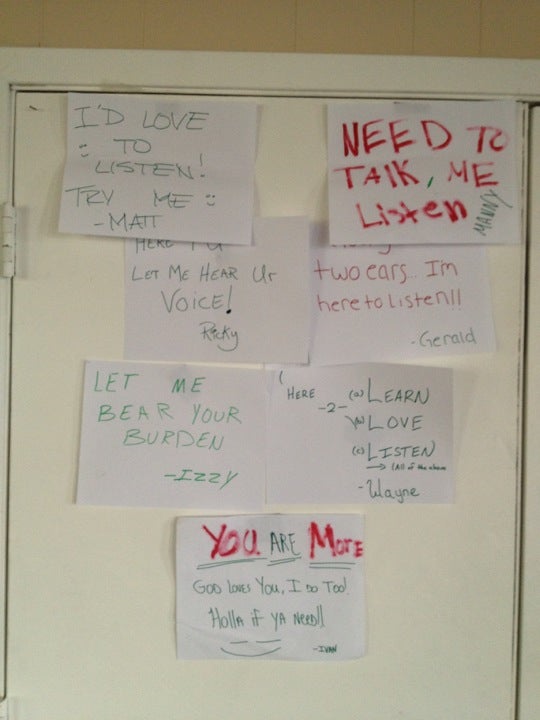 I'D LOVE
TO
LISTEN!
TRY ME
-MATT
NEED TO
TALK, ME
Listen
MANNY
LET ME HEAR Ur
VOICE!
Ricky
two ears.. I'm
here to listen!!
-Gerald
LET ME
BEAR YOUR
BURDEN
-IZZY
HERE -2- (a) LEARN
(b) LOVE
(c) LISTEN
(All of the above
-Wayne
YOU ARE MorE
GOD LOVES YOU, I DO TOO!
Holla if ya NEED!!
-IVAN